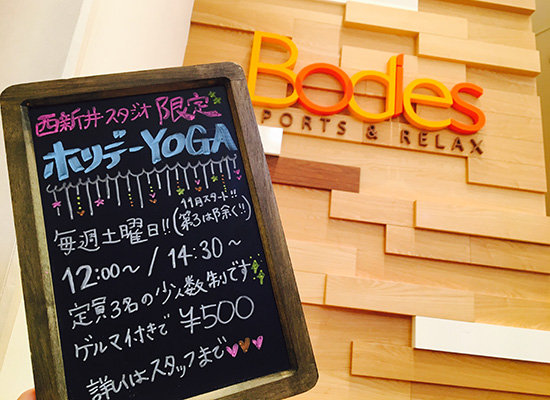 Bodies
SPORTS & RELAX
西新井スタジオ限定
ホリデーYOGA
11月スタート!!
毎週土曜日!!(第3は除く!!)
12:00〜/14:30〜
定員3名の少人数制です!!
ゲルマ付きで¥500
詳しくはスタッフまで